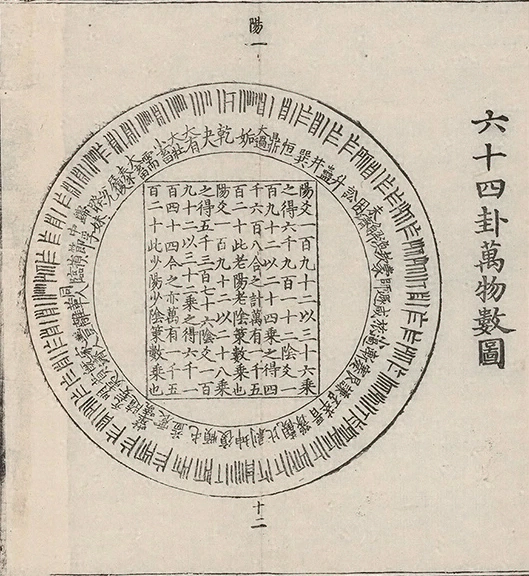 陽一
六十四卦萬物數圖
乾
夬
大有
大壯
小畜
需
大畜
泰
履
兌
睽
歸妹
中孚
節
損
臨
同人
革
離
豐
家人
既濟
賁
明夷
无妄
隨
噬嗑
震
益
屯
頤
復
姤
大過
鼎
恒
巽
井
蠱
升
訟
困
未濟
解
渙
坎
蒙
師
遯
咸
旅
小過
漸
蹇
艮
謙
否
萃
晉
豫
觀
比
剝
坤
陽爻一百九十二以三十六乘
之得六千九百一十二陰爻一
百九十二以二十四乘之得四
千六百八合之計萬有一千五
百二十此老陽老陰策數乘也
陽爻一百九十二以二十八乘
之得五千三百七十六陰爻一百
九十二以三十二乘之得六千一
百四十四合之亦萬有一千五
百二十此少陽少陰策數乘也
十二